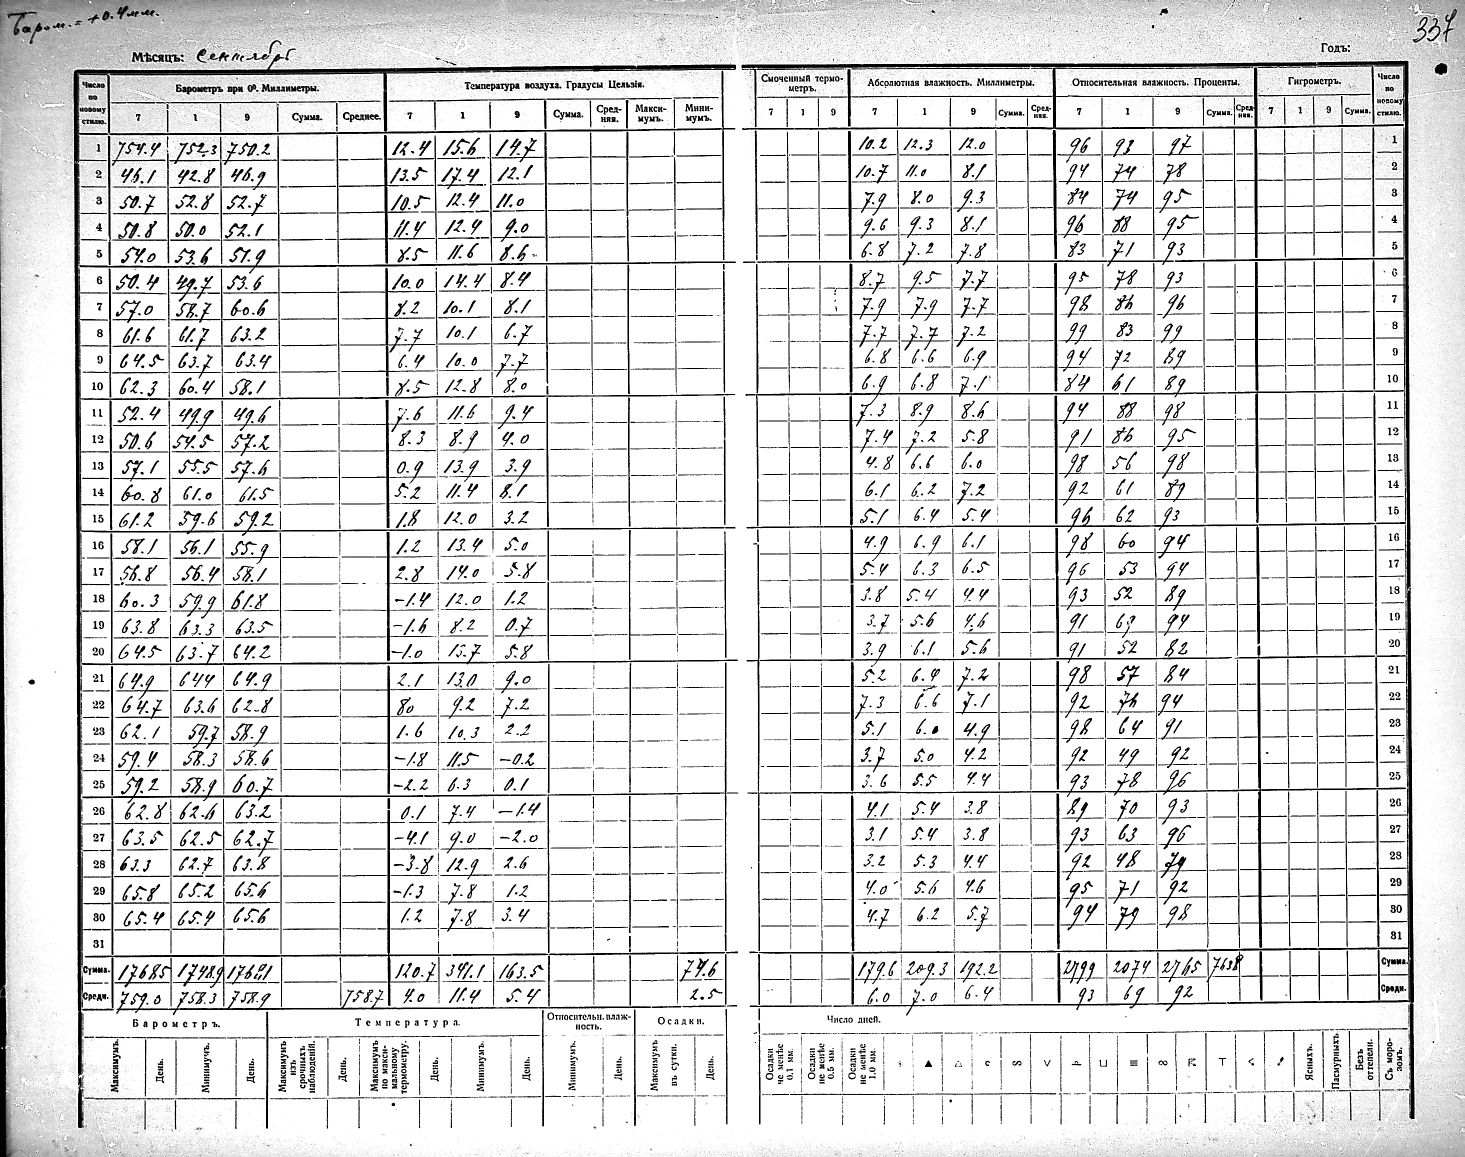 Баром. = +0.4 мм.
337
Мѣсяцъ: Сентябрь Годъ:
Число по новому стилю. Барометръ при 0⁰. Миллиметры. Температура воздуха. Градусы Цельзія. Смоченный термометръ. Абсолютная влажность. Миллиметры. Относительная влажность. Проценты. Гигрометръ. Число по новому стилю.
7 1 9 Сумма. Среднее. 7 1 9 Сумма. Средняя. Максимумъ. Минимумъ. 7 1 9 7 1 9 Сумма. Средняя. 7 1 9 Сумма. Средняя. 7 1 9 Сумма.
1 754.4 752.3 750.2 12.4 15.6 14.7 10.2 12.3 12.0 96 93 97 1
2 46.1 42.8 46.9 13.5 17.4 12.1 10.7 11.0 8.1 94 74 78 2
3 50.7 52.8 52.7 10.5 12.4 11.0 7.9 8.0 9.3 84 74 95 3
4 50.8 50.0 52.1 11.4 12.4 9.0 9.6 9.3 8.1 96 88 95 4
5 54.0 53.6 51.9 8.5 11.6 8.6 6.8 7.2 7.8 83 71 93 5
6 50.4 49.7 53.6 10.0 14.4 8.4 8.7 9.5 7.7 95 78 93 6
7 57.0 58.7 60.6 8.2 10.1 8.1 7.9 7.9 7.7 98 86 96 7
8 61.6 61.7 63.2 7.7 10.1 6.7 7.7 7.7 7.2 99 83 99 8
9 64.5 63.7 63.4 6.4 10.0 7.7 6.8 6.6 6.9 94 72 89 9
10 62.3 60.4 58.1 8.5 12.8 8.0 6.9 6.8 7.1 84 61 89 10
11 52.4 49.9 49.6 7.6 11.6 9.4 7.3 8.9 8.6 94 88 98 11
12 50.6 54.5 57.2 8.3 8.9 4.0 7.4 7.2 5.8 91 86 95 12
13 57.1 55.5 57.6 0.9 13.9 3.9 4.8 6.6 6.0 98 56 98 13
14 60.8 61.0 61.5 5.2 11.4 8.1 6.1 6.2 7.2 92 61 89 14
15 61.2 59.6 59.2 1.8 12.0 3.2 5.1 6.4 5.4 96 62 93 15
16 58.1 56.1 55.9 1.2 13.4 5.0 4.9 6.9 6.1 98 60 94 16
17 56.8 56.4 58.1 2.8 14.0 5.8 5.4 6.3 6.5 96 53 94 17
18 60.3 59.9 61.8 −1.4 12.0 1.2 3.8 5.4 4.4 93 52 89 18
19 63.8 63.3 63.5 −1.6 8.2 0.7 3.7 5.6 4.6 91 69 94 19
20 64.5 63.7 64.2 −1.0 15.7 5.8 3.9 6.1 5.6 91 52 82 20
21 64.9 644 64.9 2.1 13.0 9.0 5.2 6.4 7.2 98 57 84 21
22 64.7 63.6 62.8 80 9.2 7.2 7.3 6.6 7.1 92 76 94 22
23 62.1 59.7 58.9 1.6 10.3 2.2 5.1 6.0 4.9 98 64 91 23
24 59.4 58.3 58.6 −1.8 11.5 −0.2 3.7 5.0 4.2 92 49 92 24
25 59.2 58.9 60.7 −2.2 6.3 0.1 3.6 5.5 4.4 93 78 96 25
26 62.8 62.6 63.2 0.1 7.4 −1.4 4.1 5.4 3.8 89 70 93 26
27 63.5 62.5 62.7 −4.1 9.0 −2.0 3.1 5.4 3.8 93 63 96 27
28 63.3 62.7 63.8 −3.8 12.9 2.6 3.2 5.3 4.4 92 48 79 28
29 65.8 65.2 65.6 −1.3 7.8 1.2 4.0 5.6 4.6 95 71 92 29
30 65.4 65.4 65.6 1.2 7.8 3.4 4.7 6.2 5.7 94 79 98 30
31 31
Сумма. 17685 1748.9 120.7 341.1 163.5 74.6 179.6 209.3 192.2 2799 2074 2765 7638 Сумма.
Средн. 759.0 758.3 758.9 758.7 4.0 11.4 5.4 2.5 6.0 7.0 6.4 93 69 92 Средн.
Барометръ. Температура. Относительн. влажность. Осадки. Число дней.
Максимумъ. День. Минимучъ. День. Максимумъ изъ срочныхъ наблюденій. День. Максимумъ по максимальному термометру. День. Минимумъ. День. Минимумъ. День. Максимумъ въ сутки. День. Осадки не менѣе 0.1 мм. Осадки не менѣе 0.5 мм. Осадки не менѣе 1.0 мм. ▲ △ ≡ ∞ Ясныхъ. Пасмурныхъ Безъ оттепели. Съ морозомъ.